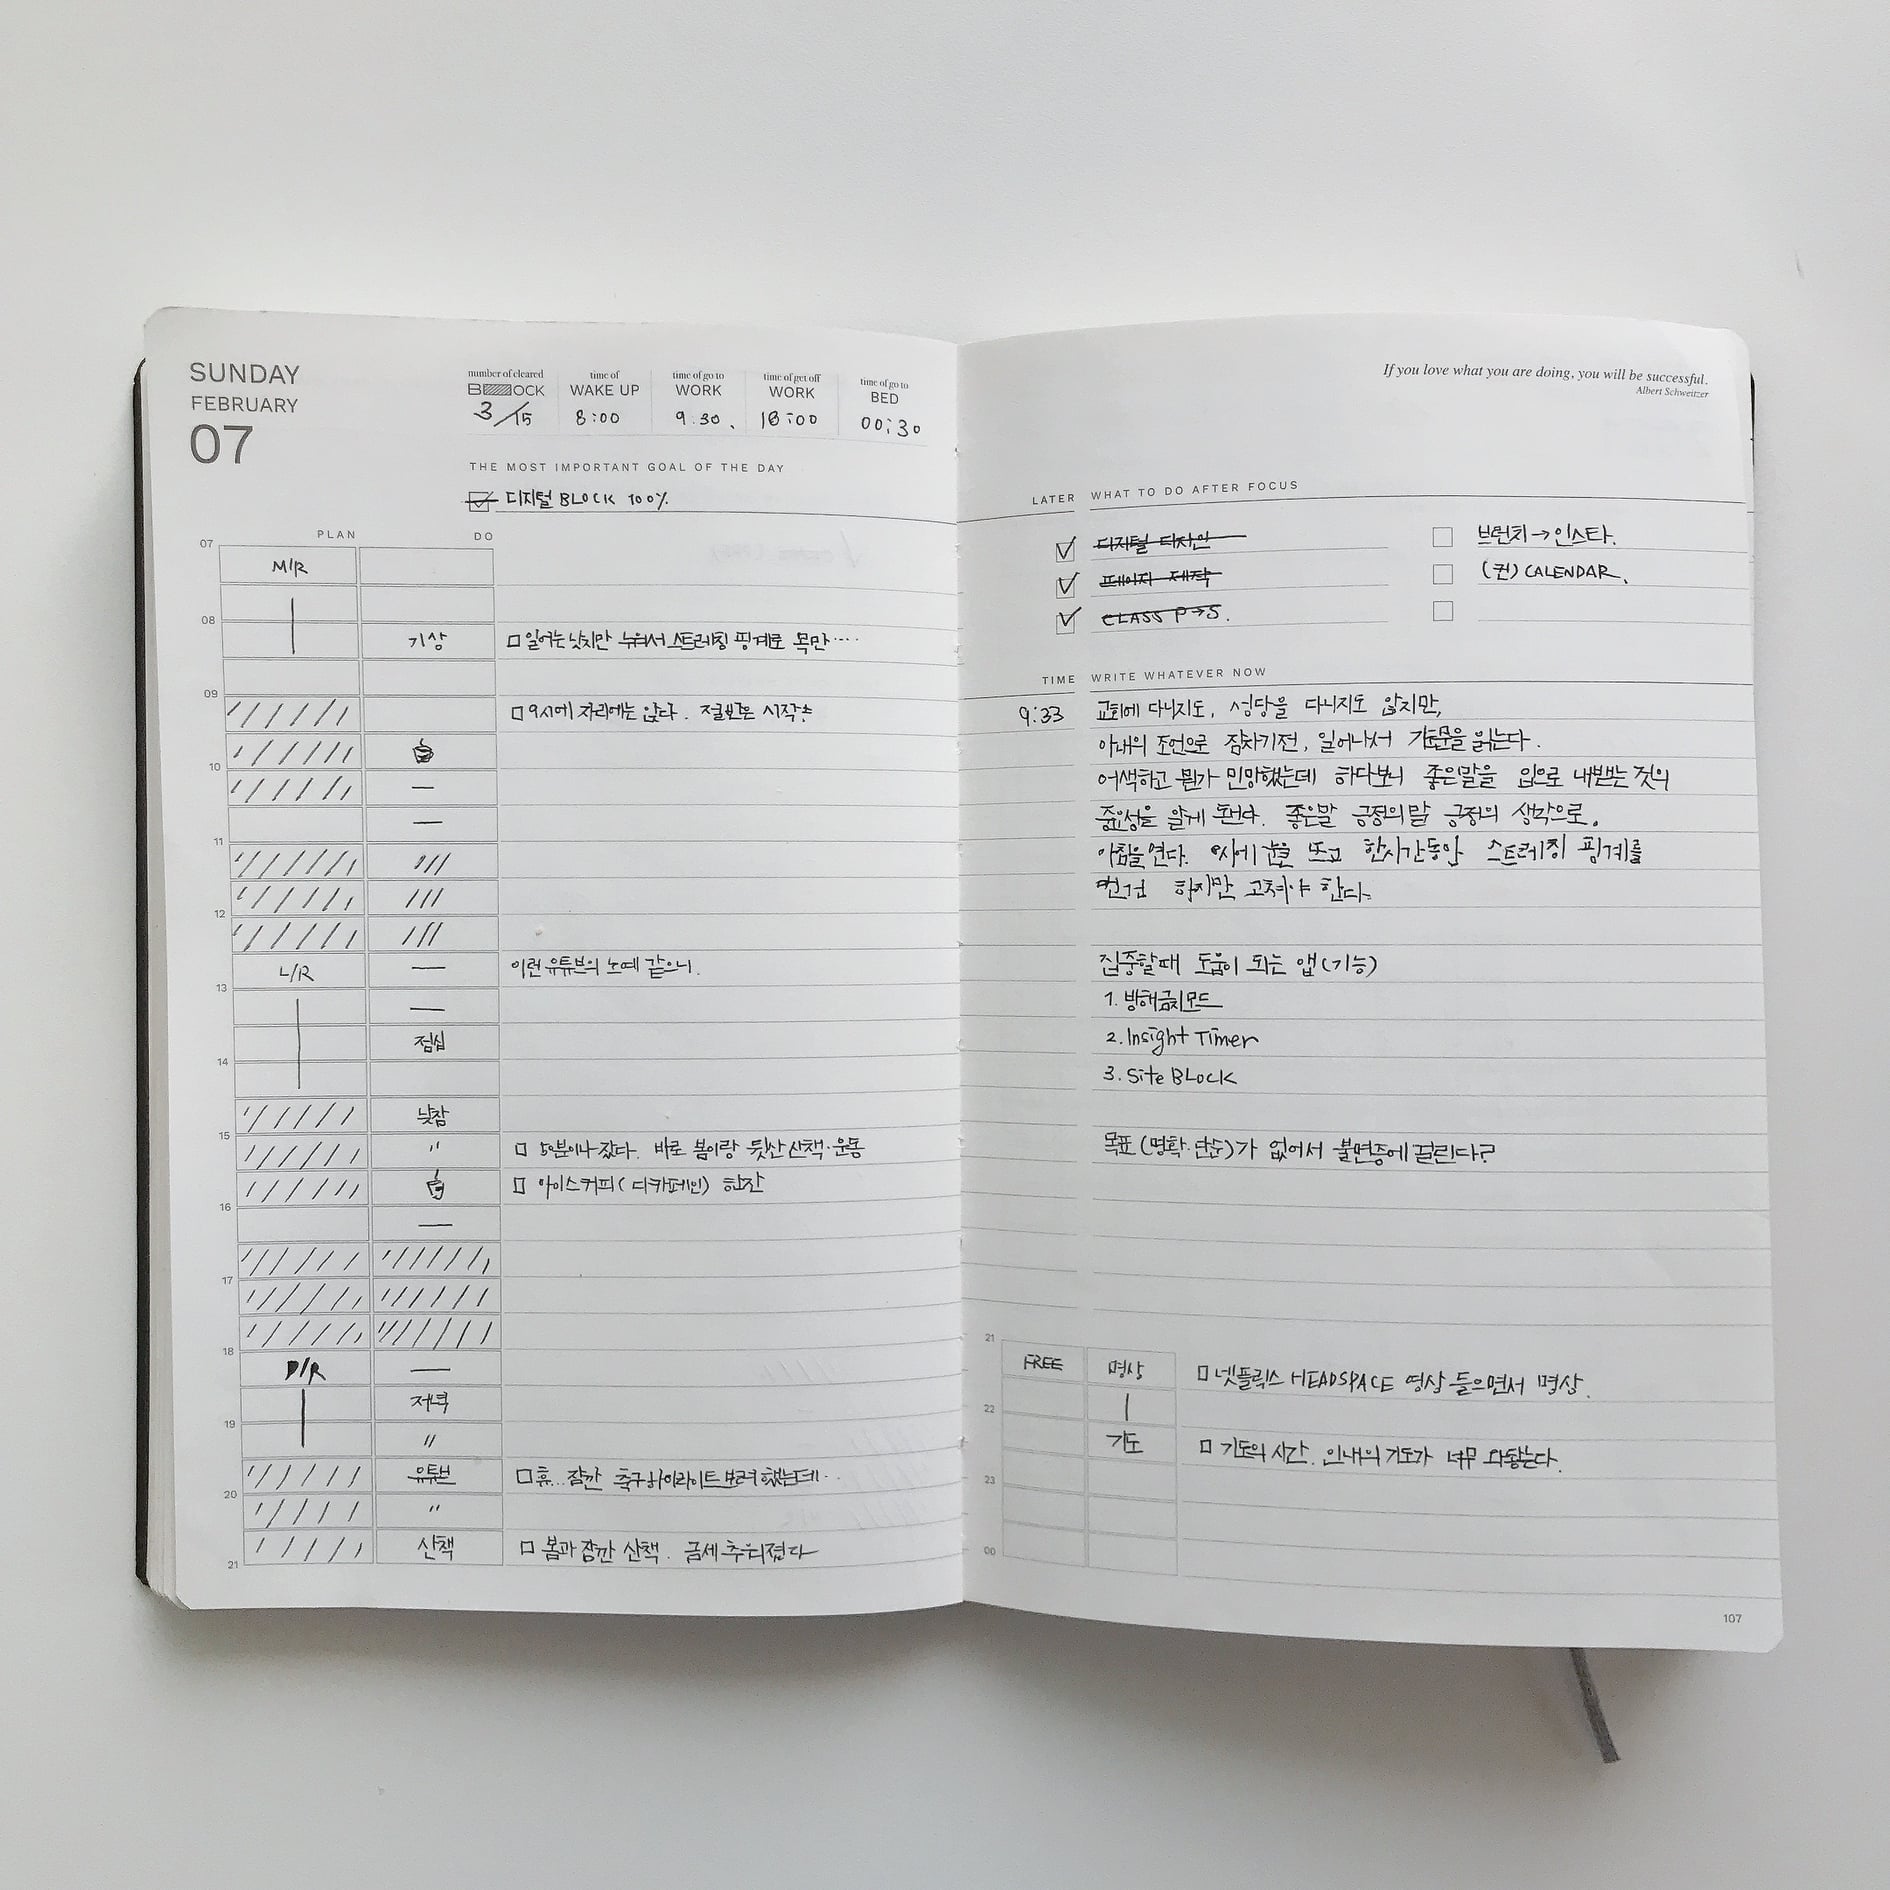 SUNDAY
FEBRUARY
07
number of cleared
BLOCK
3/15
time of
WAKE UP
8:00
time of go to
WORK
9.30.
time of get off
WORK
18:00
time of go to
BED
00:30
THE MOST IMPORTANT GOAL OF THE DAY
디지털 BLOCK 100%
PLAN DO
07
M/R
08
기상 일어는 났지만 누워서 스트레칭 핑계로 목만....
09
9시에 자리에는 앉다. 절반은 시작
10
11
12
L/R 이런 유튜브의 노예 같으니.
13
점심
14
낮잠
15
" 50분이나 잤다. 바로 봄이랑 뒷산 산책·운동
아이스커피(디카페인) 한잔
16
17
18
D/R
저녁
19
"
유튜브 휴... 잠깐 축구하이라이트 보려 했는데..
20
"
산책 봄과 잠깐 산책. 금세 추워졌다
21
If you love what you are doing, you will be successful.
Albert Schweitzer
LATER WHAT TO DO AFTER FOCUS
디지털 디자인
페이지 제작
CLASS P→S.
브런치→인스타.
(퀸) CALENDAR.
TIME WRITE WHATEVER NOW
9:33 교회에 다니지도, 성당을 다니지도 않지만,
아내의 조언으로 잠자기전, 일어나서 기도문을 읽는다.
어색하고 뭔가 민망했는데 하다보니 좋은말을 입으로 내뱉는 것의
중요성을 알게 된다. 좋은말 긍정의 말 긍정의 생각으로.
아침을 연다. 8시에 눈을 뜨고 한시간동안 스트레칭 핑계를
하지만 고쳐야 한다.
집중할때 도움이 되는 앱(기능)
1. 방해금지모드
2. Insight Timer
3. Site BLOCK
목표(명확·단순)가 없어서 불면증에 걸린다?
21
FREE 명상 넷플릭스 HEADSPACE 영상 들으면서 명상.
22
기도 기도의 시간. 기도가 너무 와닿는다.
23
00
107